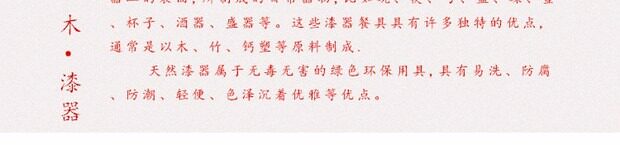 木·漆器
、杯子、酒器、盛器等。这些漆器餐具具有许多独特的优点,
通常是以木、竹、钙塑等原料制成.
天然漆器属于无毒无害的绿色环保用具,具有易洗、防腐
、防潮、轻便、色泽沉着优雅等优点。